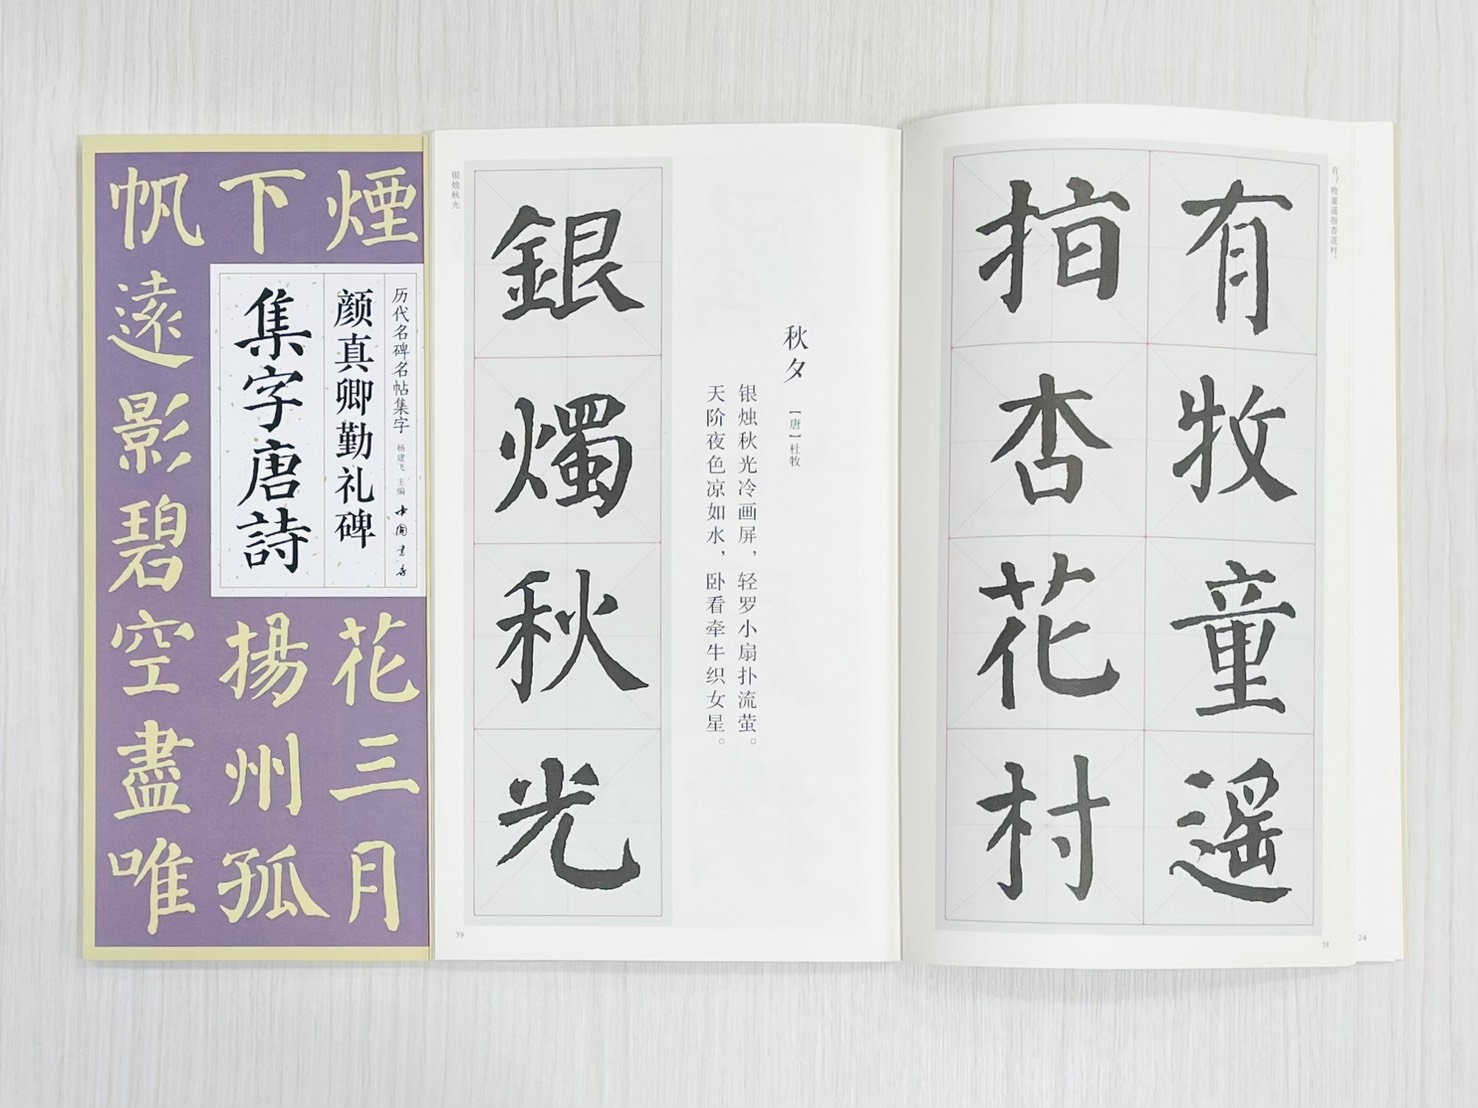 煙
花三月
下
揚州孤
帆遠影碧空盡唯
历代名碑名帖集字 杨建飞 主编 中国书店
颜真卿勤礼碑
集字唐詩
24
有？牧童遥指杏花村。
有牧童遥
指杏花村
38
秋夕 【唐】杜牧
银烛秋光冷画屏，轻罗小扇扑流萤。
天阶夜色凉如水，卧看牵牛织女星。
銀燭秋光
银烛秋光
39